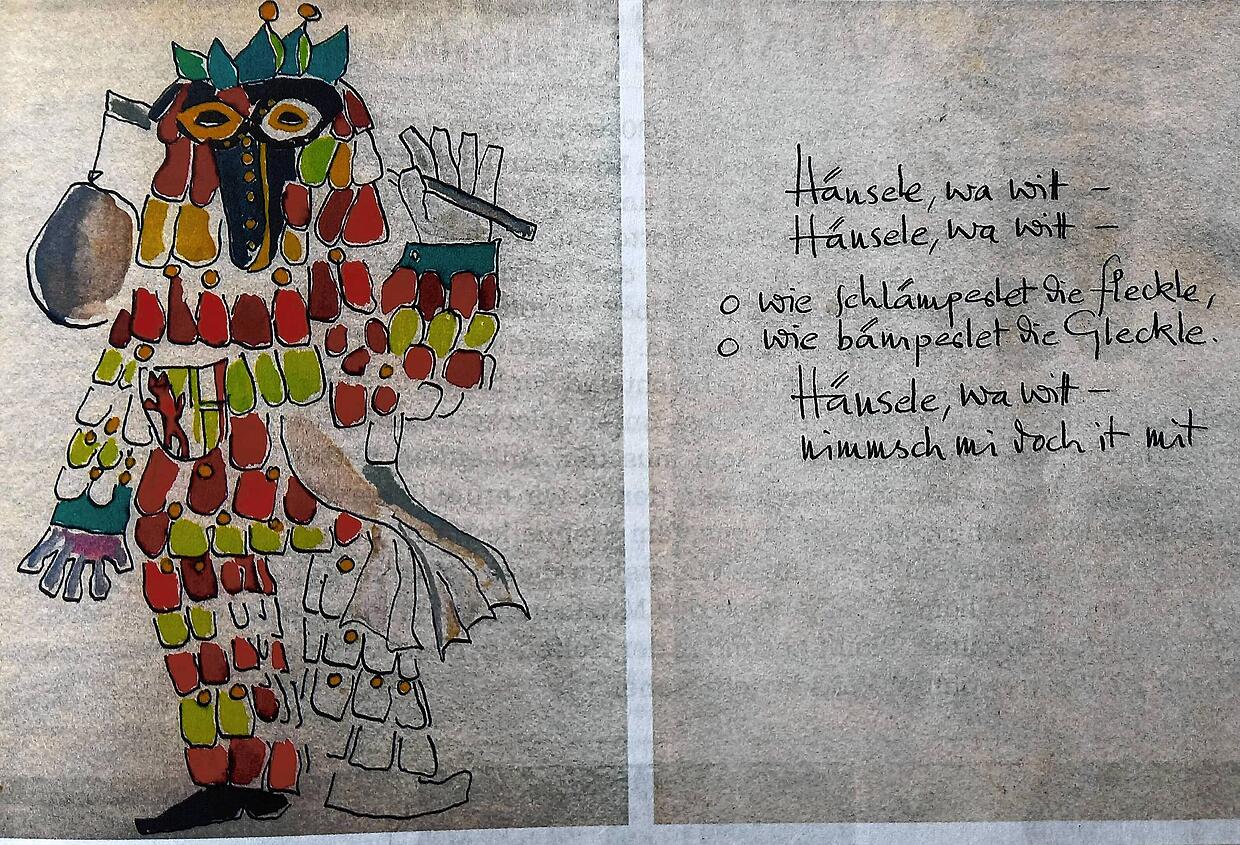 Hánsele, wa wit –
Hánsele, wa witt –
o wie schlámpeslet die fleckle,
o wie bámpeslet die Gleckle.
Hánsele, wa witt –
nimmsch mi doch it mit